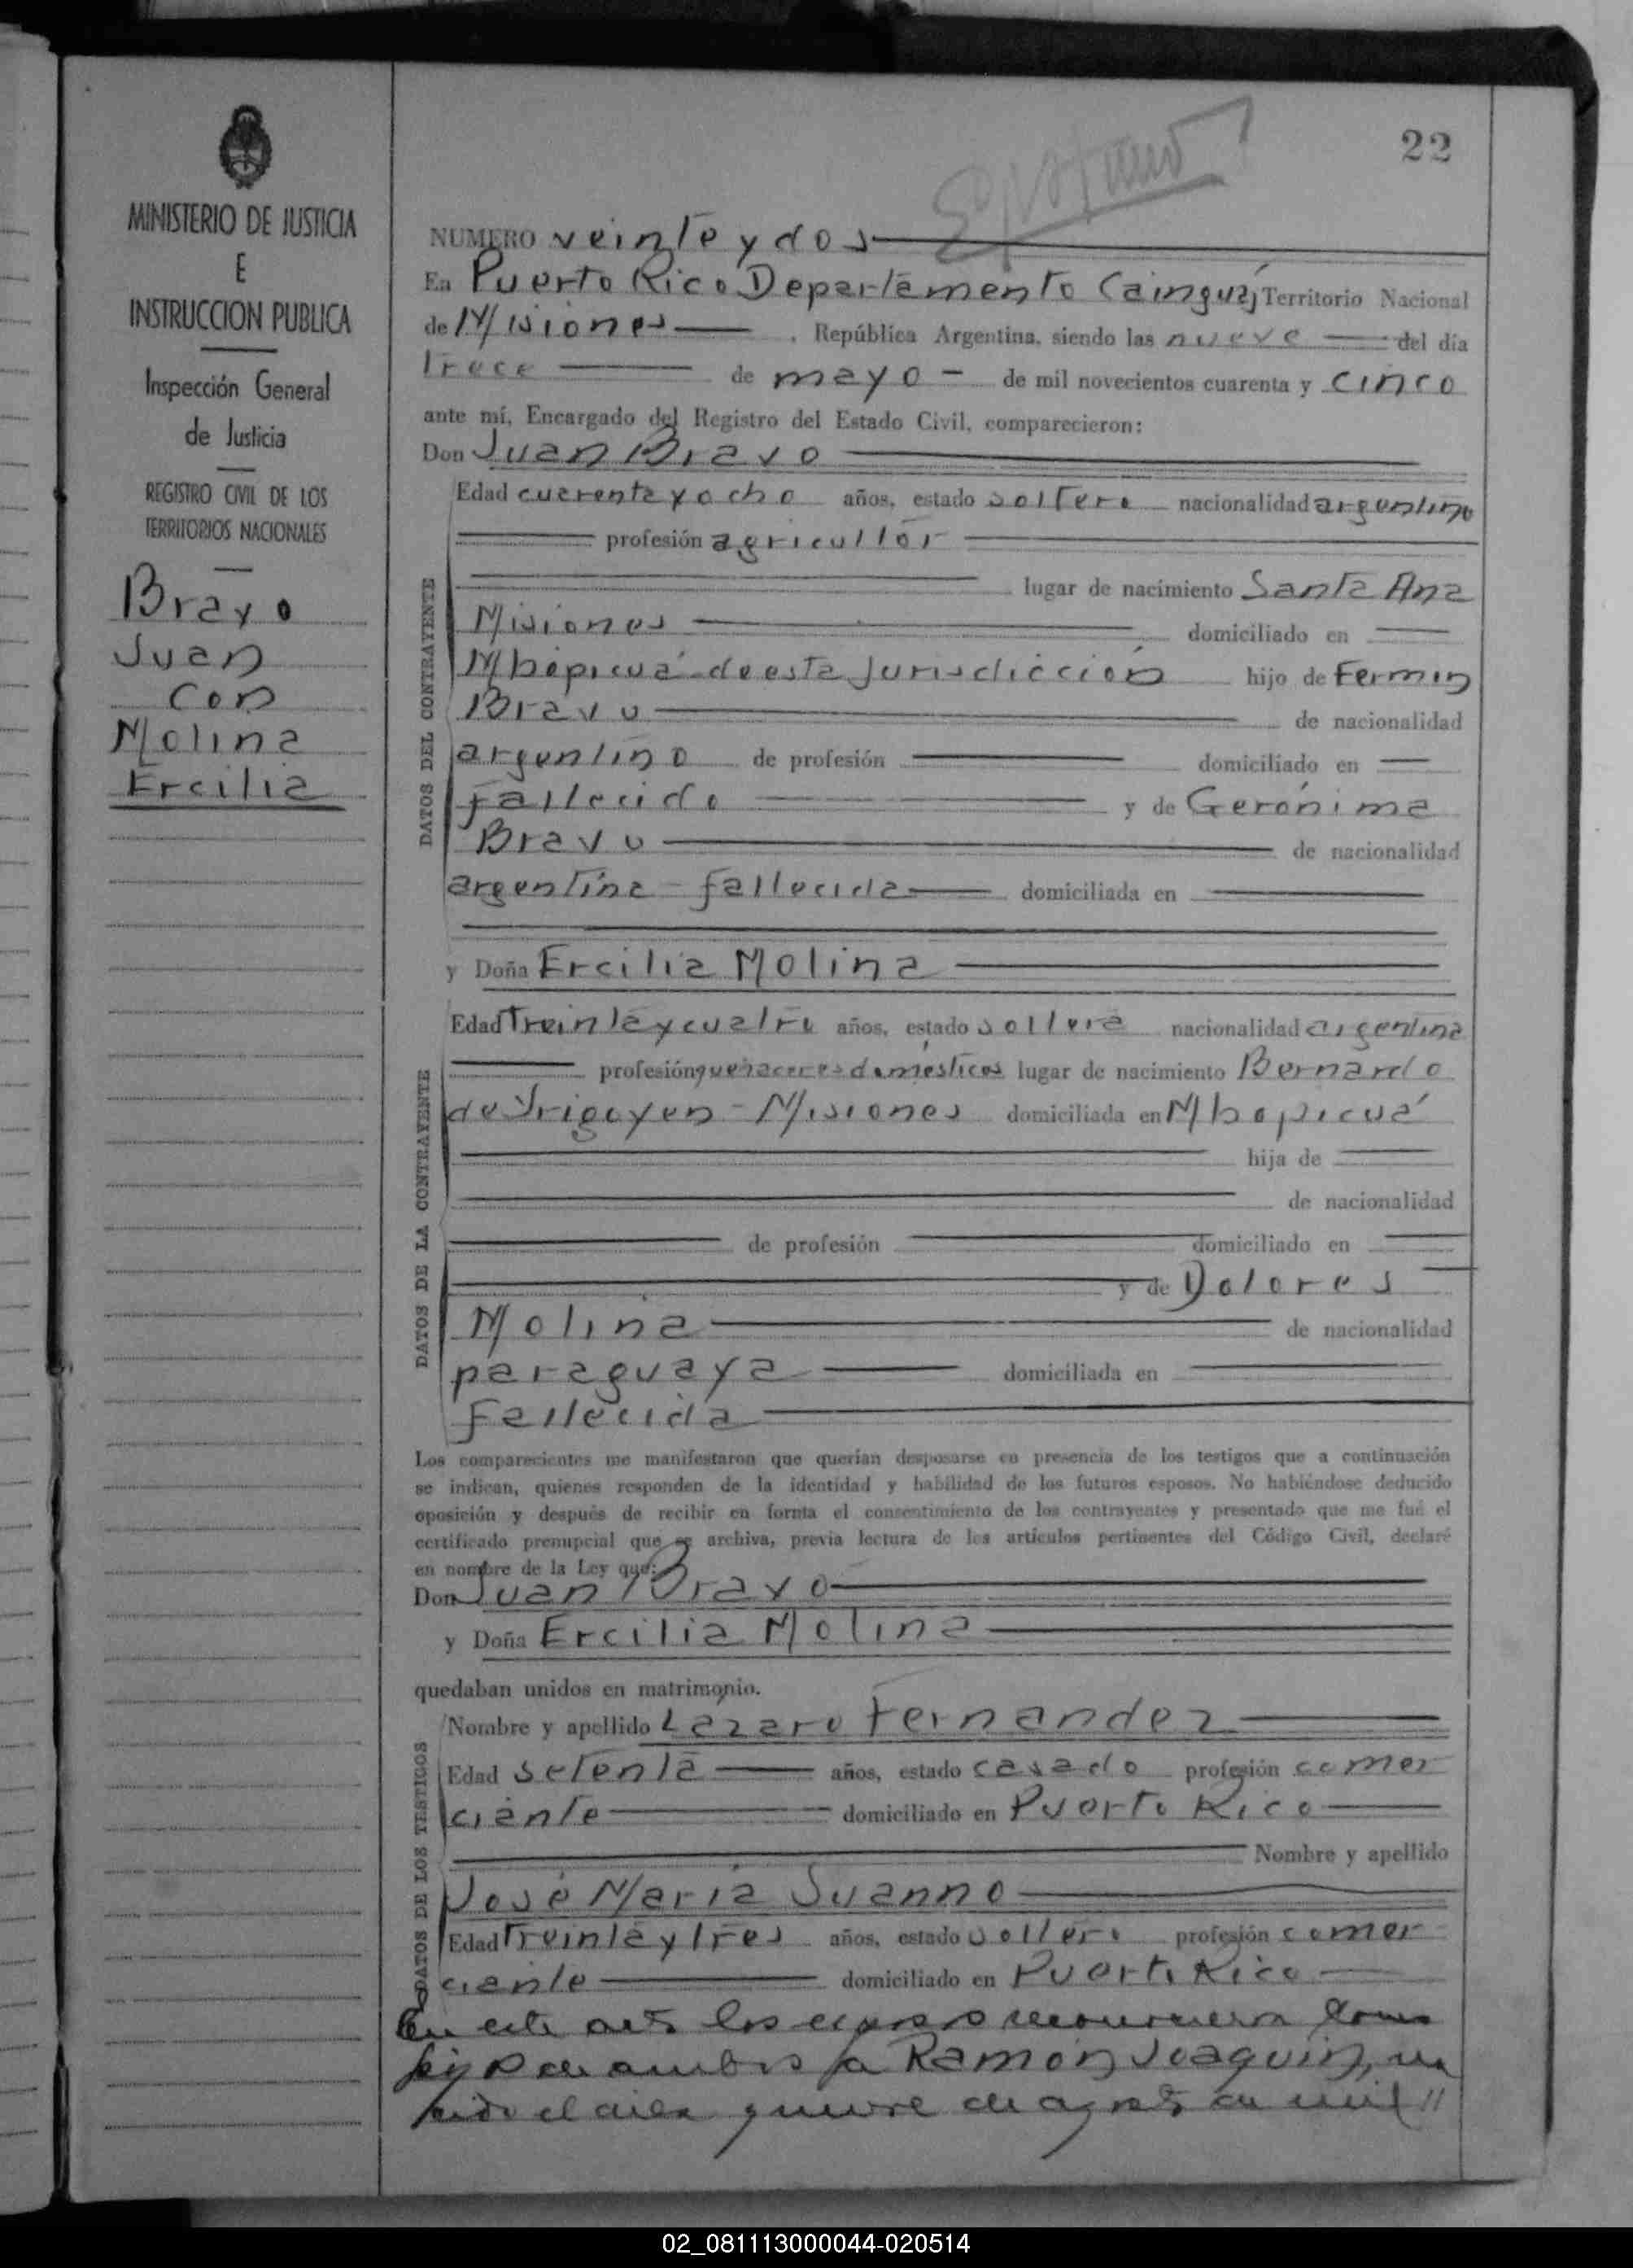 22
MINISTERIO DE JUSTICIA
E
INSTRUCCION PUBLICA
Inspección General
de Justicia
REGISTRO CIVIL DE LOS
TERRITORIOS NACIONALES
Bravo
Juan
con
Molina
Ercilia
NUMERO veinte y dos
En Puerto Rico Departamento Cainguás Territorio Nacional
de Misiones , República Argentina, siendo las nueve del día
trece de mayo de mil novecientos cuarenta y cinco
ante mí, Encargado del Registro del Estado Civil, comparecieron:
Don Juan Bravo
DATOS DEL CONTRAYENTE
Edad cuarenta y ocho años, estado soltero nacionalidad argentino
profesión agricultor
lugar de nacimiento Santa Ana
Misiones domiciliado en
Mbopicuá de esta Jurisdicción hijo de Fermin
Bravo de nacionalidad
argentino de profesión domiciliado en
fallecido y de Gerónima
Bravo de nacionalidad
argentina - fallecida domiciliada en
y Doña Ercilia Molina
DATOS DE LA CONTRAYENTE
Edad treinta y cuatro años, estado soltera nacionalidad argentina
profesión quehaceres domésticos lugar de nacimiento Bernardo
de Irigoyen - Misiones domiciliada en Mbopicuá
hija de
de nacionalidad
de profesión domiciliado en
y de Dolores
Molina de nacionalidad
paraguaya domiciliada en
fallecida
Los comparecientes me manifestaron que querían desposarse en presencia de los testigos que a continuación
se indican, quienes responden de la identidad y habilidad de los futuros esposos. No habiéndose deducido
oposición y después de recibir en forma el consentimiento de los contrayentes y presentado que me fué el
certificado prenupcial que se archiva, previa lectura de los artículos pertinentes del Código Civil, declaré
en nombre de la Ley que:
Don Juan Bravo
y Doña Ercilia Molina
quedaban unidos en matrimonio.
DATOS DE LOS TESTIGOS
Nombre y apellido Lazaro Fernandez
Edad setenta años, estado casado profesión comer
ciante domiciliado en Puerto Rico
Nombre y apellido
José María Suanno
Edad treinta y tres años, estado soltero profesión comer
ciante domiciliado en Puerto Rico
En este acto los esposos reconocieron como
hijo de ambos a Ramón Joaquin, na
cido el día quince de agosto de mil //
02_081113000044-020514